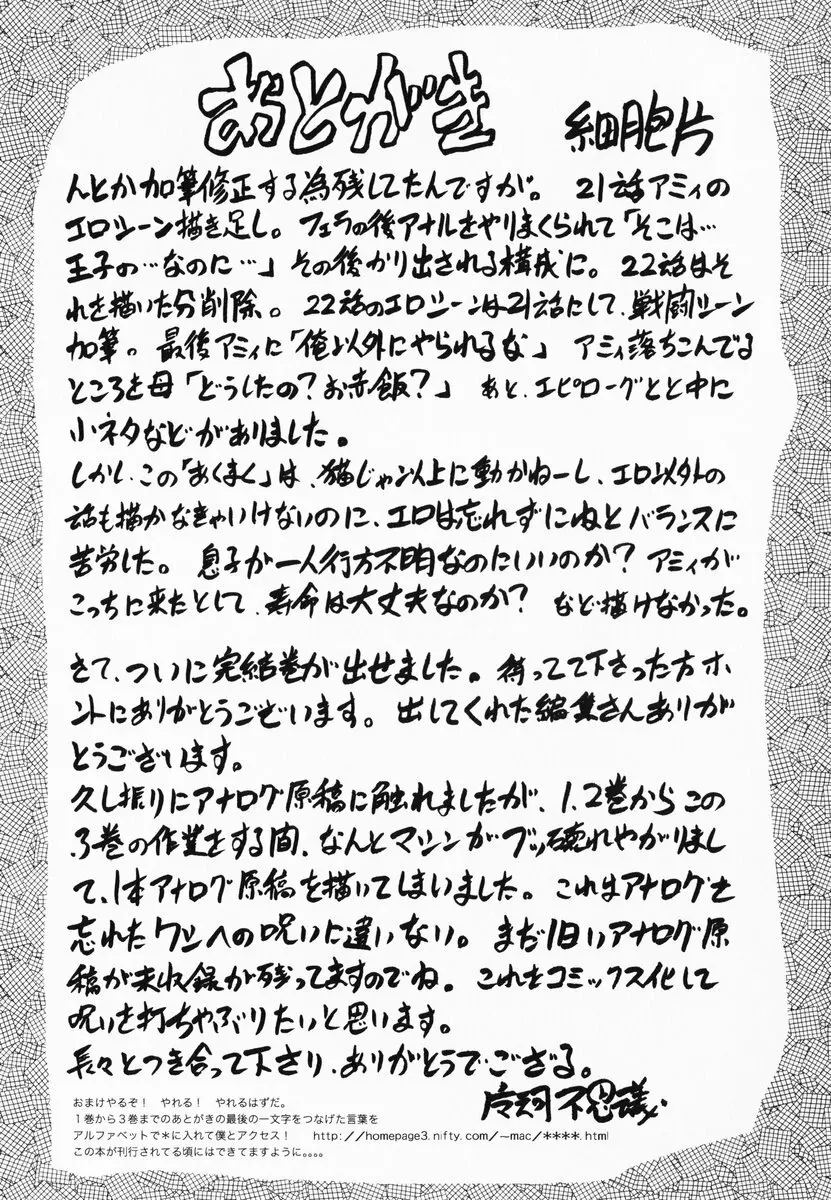 あとがき 細胞片
んとか加筆修正する為残してたんですが。 21話アミィの
エロシーン描き足し。フェラの後アナルをやりまくられて「そこは…
王子の…なのに…」その後かり出される構成に。22話はそ
れを描いた分削除。22話のエロシーンは21話にして、戦闘シーン
加筆。最後アミィに「俺以外にやられるな」 アミィ落ちこんでる
ところを母「どうしたの?お赤飯?」 あと、エピローグとと中に
小ネタなどがありました。
しかし、この「あくまく」は、猫じゃン以上に動かねーし、エロ以外の
話も描かなきゃいけないのに、エロは忘れずにねとバランスに
苦労した。息子が一人行方不明なのにいいのか?アミィが
こっちに来たとして、寿命は大丈夫なのか? など描けなかった。
さて、ついに完結巻が出せました。待ってて下さった方ホ
ントにありがとうございます。出してくれた編集さんありが
とうございます。
久し振りにアナログ原稿に触れましたが、1、2巻からこの
3巻の作業をする間、なんとマシンがブッ壊れやがりまし
て、1本アナログ原稿を描いてしまいました。これはアナログを
忘れたワシへの呪いに違いない。まだ旧いアナログ原
稿が未収録が残ってますのでね。これをコミックス化して
呪いを打ちやぶりたいと思います。
長々とつき合って下さり、ありがとうでござる。
不思議
おまけやるぞ! やれる! やれるはずだ。
1巻から3巻までのあとがきの最後の一文字をつなげた言葉を
アルファベットで*に入れて僕とアクセス! http://homepage3.nifty.com/~mac/****.html
この本が刊行されてる頃にはできてますように。。。。